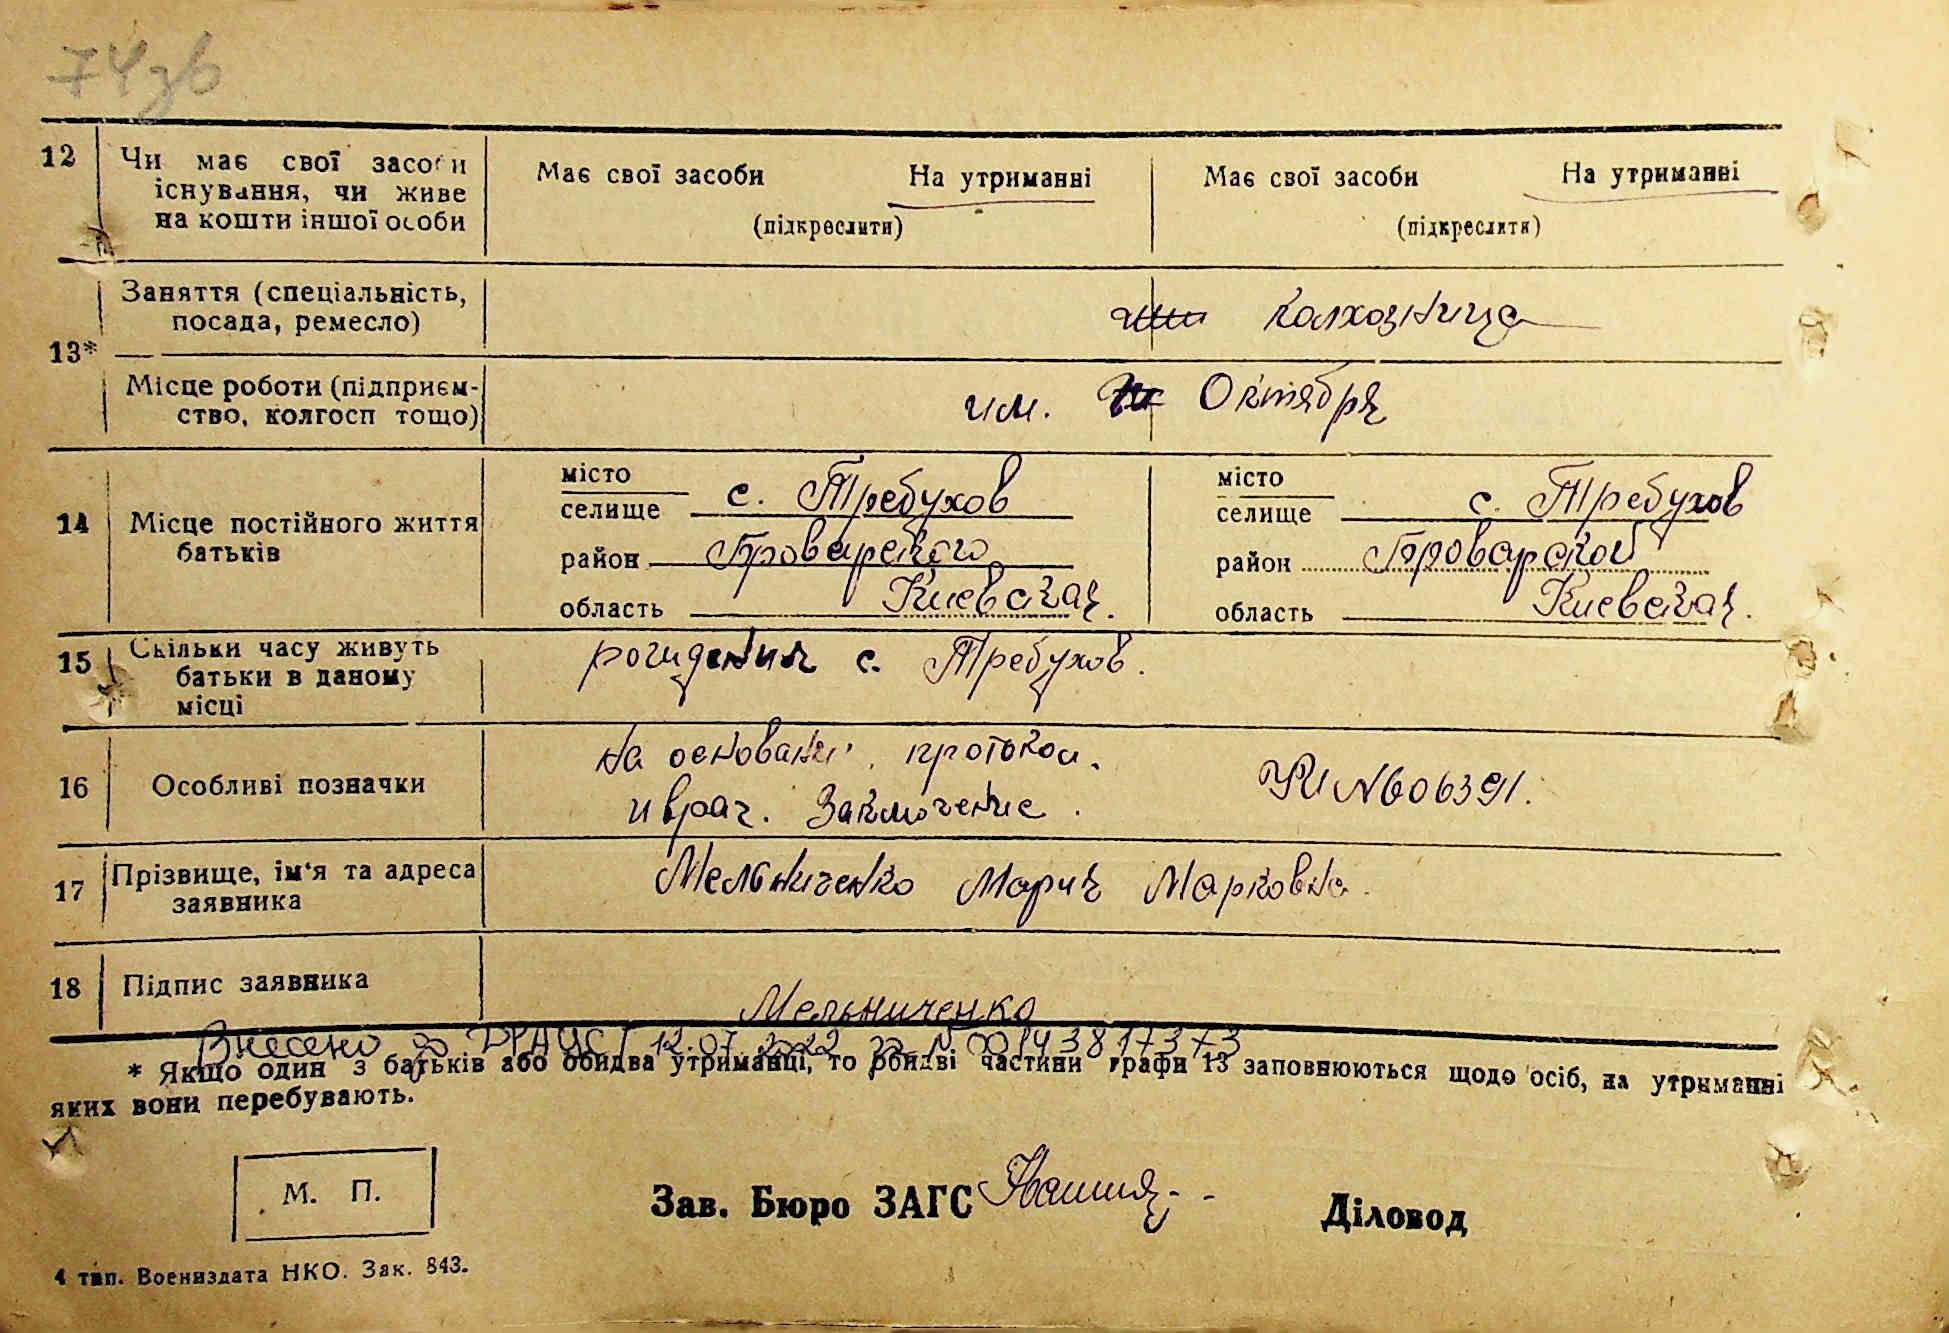 74зв
12 Чи має свої засоби існування, чи живе на кошти іншої особи
Має свої засоби На утриманні
(підкреслити)
Має свої засоби На утриманні
(підкреслити)
13*
Заняття (спеціальність, посада, ремесло)
колхозница
Місце роботи (підприєм-
ство, колгосп тощо)
им. Октября
14 Місце постійного життя батьків
місто
селище с. Требухов
район Броварского
область Киевская.
місто
селище с. Требухов
район Броварской
область Киевская.
15 Скільки часу живуть батьки в даному місці
рождения с. Требухов.
16 Особливі позначки
на основани протокол.
и врач. Заключение.
N606391.
17 Прізвище, ім'я та адреса заявника
Мельниченко Мария Марковна.
18 Підпис заявника
Мельниченко
Внесено до ДРАЦСГ 12.07.2022 за N 00143817373
* Якщо один з батьків або обидва утриманці, то обидві частини графи 13 заповнюються щодо осіб, на утриманні
яких вони перебувають.
М. П.
Зав. Бюро ЗАГС
Діловод
4 тип. Воениздата НКО. Зак. 843.